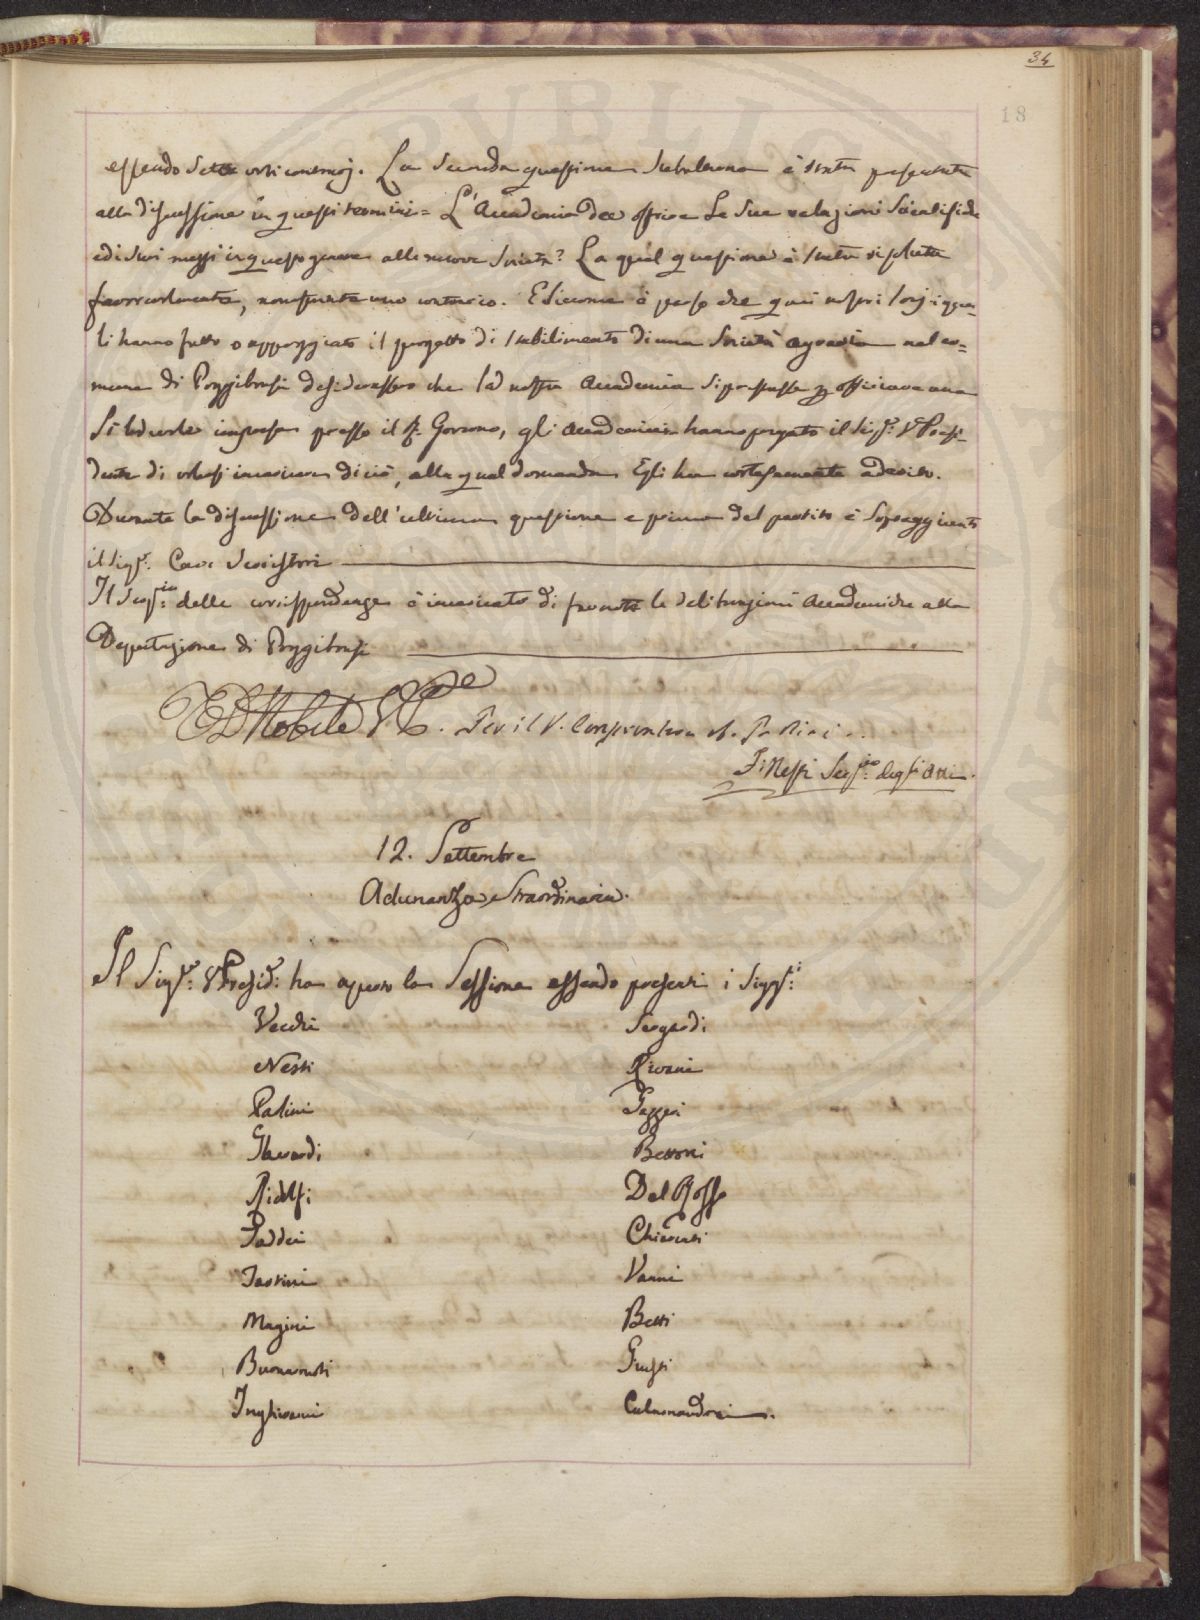 34
18
essendo sette voti contrarj. La seconda questione subalterna è stata presentata
alla discussione in questi termini = L'Accademia dee offrire le sue relazioni Scientifiche
ed i suoi mezzi in questo genere alla nuova Società? La qual questione è stata risoluta
favorevolmente, nonostante uno contrario. E siccome è parso che quei nostri Socj i qua=
li hanno fatto o appoggiato il progetto di stabilimento di una Società agraria nel co=
mune di Poggibonsi desiderassero che la nostra Accademia si prestasse
presso il Governo, gli Accademici hanno pregato il Sigr. V. Presi=
dente di volersi incaricare di ciò, alla qual domanda Egli ha cortesemente aderito.
Durante la discussione dell'ultima questione e prima del partito è sopraggiunto
il Sigr. Cav. Serristori
Il Segrio. delle corrispondenze è incaricato di far note le deliberazioni Accademiche alla
Deputazione di Poggibonsi
E. D. Nobile V. Pe. Per il V. M. Padini
F. Nesti Segrio. degli Atti.
12. Settembre
Adunanza Straordinaria.
Il Sigr. V. Presid: ha aperto la Sessione essendo presenti i Sigg.ri:
Vecchi Sergardi
Nesti Rivani
Padini Gazzeri
Gherardi Bettoni
Ridolfi Del Rosso
Taddei Chiarenti
Tartini Vanni
Magini Betti
Buonarroti Giusti
Inghirami Calamandrei.